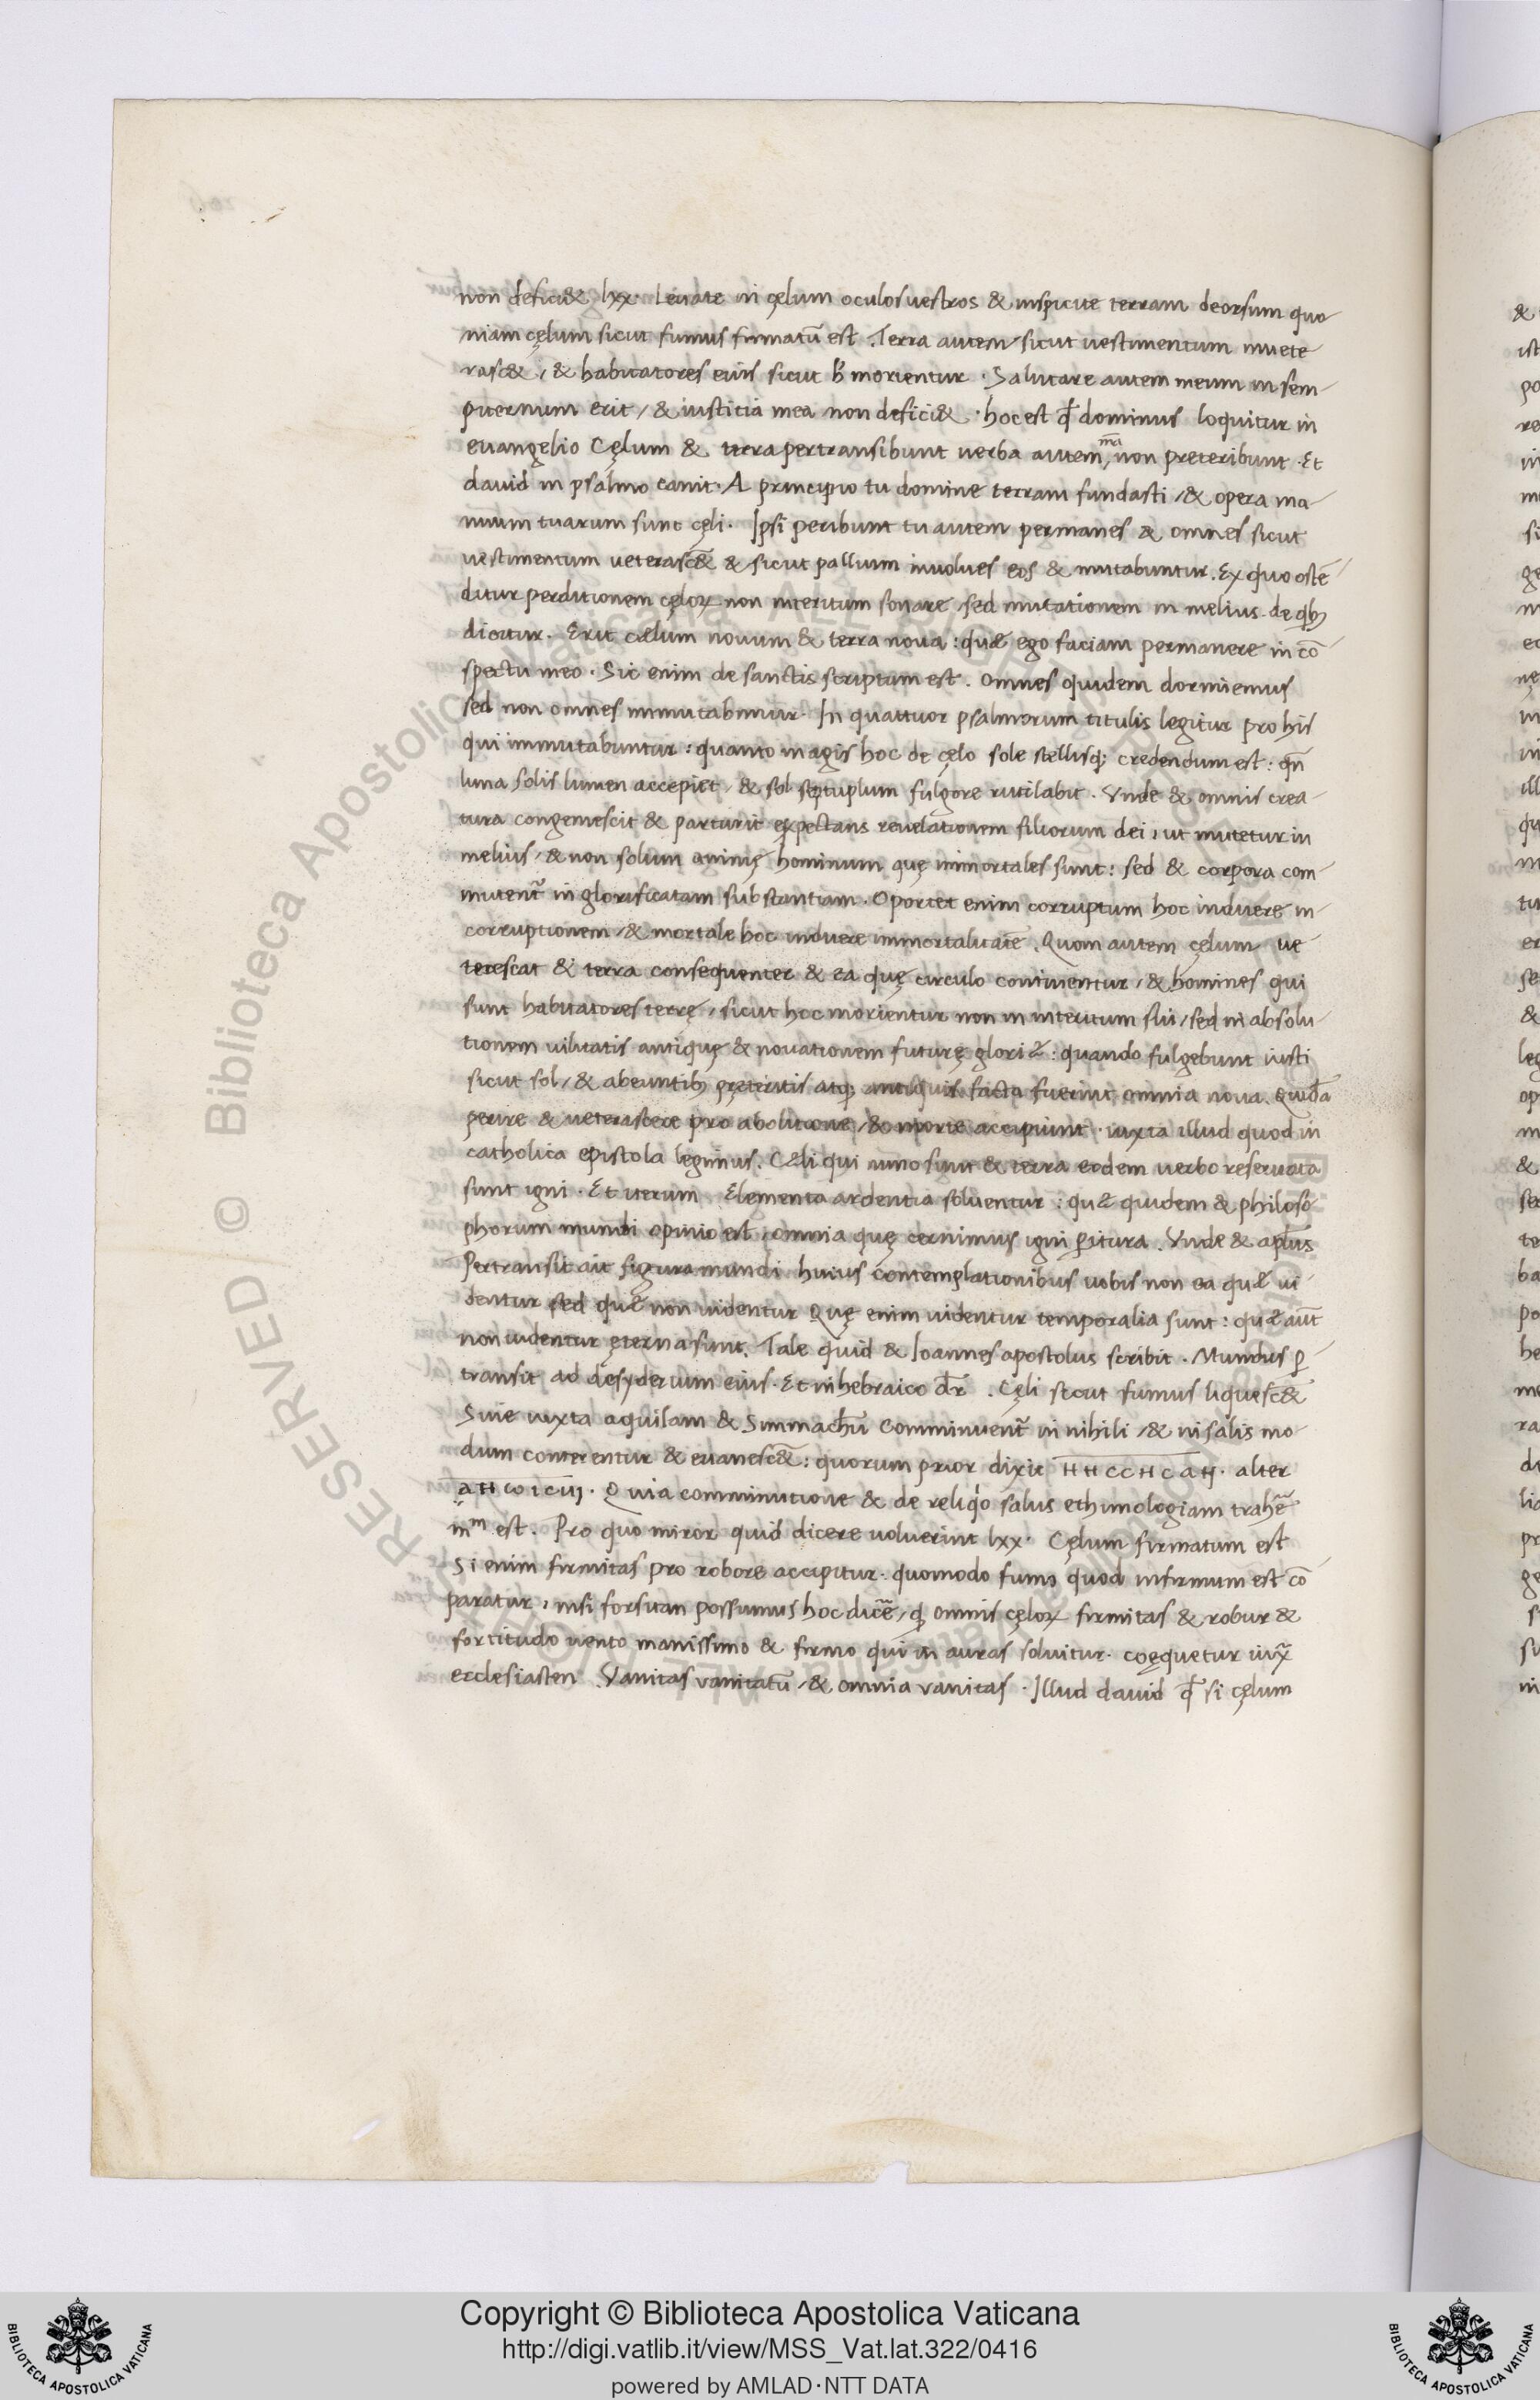 non defici& lxx. Leuate in cęlum oculos uestros & inspicite terram deorsum quo
niam cęlum sicut fumus firmatū est. Terra autem sicut uestimentum inuete
rasc&, & habitatores eius sicut h̄ morientur. Salutare autem meum in sem
piternum erit, & iusticia mea non defici&. hoc est qđ dominus loquitur in
euangelio Cęlum & terra pertransibunt uerba autem m̄a non preteribunt. Et
dauid in psalmo canit. A principio tu domine terram fundasti, & opera ma
nuum tuarum sunt cęli. Ipsi peribunt tu autem permanes & omnes sicut
uestimentum ueterasc̄& & sicut pallium inuolues eos & mutabuntur. Ex quo ostē
ditur perditionem cęloꝝ non interitum sonare, sed mutationem in melius. de qbꝫ
dicitur. Erit cælum nouum & terra noua: quæ ego faciam permanere in cō
spectu meo. Sic enim de sanctis scriptum est. Omnes quidem dormiemus
sed non omnes immutabimur. In quattuor psalmorum titulis legitur pro his
qui immutabuntur: quanto magis hoc de cęlo sole stellisqꝫ credendum est: qn̄
luna solis lumen accepiet, & sol septuplum fulgore rutilabit. Vnde & omnis crea
tura congemescit & parturit expectans reuelationem filiorum dei, ut mutetur in
melius, & non solum animę hominum quę immortales sunt: sed & corpora com
mutent᷑ in glorificatam substantiam. Oportet enim corruptum hoc induere in
corruptionem, & mortale hoc induere immortalitatē. Quom autem cęlum ue
terescat & terra consequenter & ea quę circulo continentur, & homines qui
sunt habitatores terrę, sicut hoc morientur non in interitum sui, sed in absolu
tionem uilitatis antiquę & nouationem futurę gloriæ: quando fulgebunt iusti
sicut sol, & abeuntibꝫ pręteritis atqꝫ antiquis facta fuerint omnia noua. Quidā
perire & ueterascere pro abolitione, & morte accipiunt. iuxta illud quod in
catholica epistola legimus. Cæli qui nunc sunt & terra eodem uerbo reseruata
sunt igni. Et iterum. Elementa ardentia soluentur: quæ quidem & philoso
phorum mundi opinio est, omnia quę cernimus igni ꝑitura. Vnde & apl̄us
Pertransit ait figura mundi huius contemplationibus uobis non ea quæ ui
dentur sed quæ non uidentur Quę enim uidentur temporalia sunt: quæ aut̄
non uidentur ęterna sunt. Tale quid & Ioannes apostolus scribit. Mundus ꝑ
transit ad desyderium eius. Et in hebraico dr̄. Cęli sicut fumus liquesc̄&
Siue iuxta aquilam & Simmachū Comminuent᷑ in nihili, & in salis mo
dum conterentur & euanesc̄&: quorum prior dixit ΗΗCCΗCαΗ. alter
αΗωιcιη. Quia comminutione & de reliq̊o salus ethimologiam trahē
inm̄ est. Pro quo miror quid dicere uoluerint lxx. Cęlum firmatum est
Si enim firmitas pro robore accipitur. quomodo fumo quod infirmum est cō
paratur, nisi forsitan possumus hoc dicē̄, qđ omnis cęloꝝ firmitas & robur &
fortitudo uento inanissimo & firmo qui in auras soluitur. coęquetur iux̄
ecclesiasten. Vanitas vanitatū, & omnia vanitas. Illud dauid qđ si cęlum
Copyright © Biblioteca Apostolica Vaticana
http://digi.vatlib.it/view/MSS_Vat.lat.322/0416
powered by AMLAD·NTT DATA